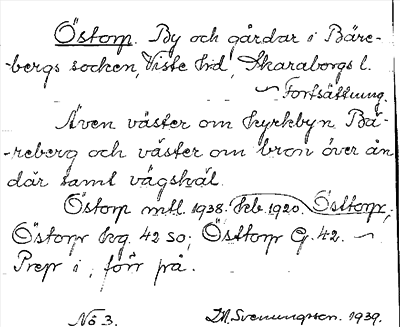 Östorp. By och gårdar i Bäre-
-bergs socken, Viste hd, Skaraborgs l.
~ Fortsättning.
Även väster om kyrkbyn Bä-
-reberg och väster om bron över ån
där samt vägskäl.
Östorp mtl. 1938. Jeb. 1920. Östtorp,
Östorp kg. 42 so; Östtorp G. 42. ~
Prep i, förr på.
No 3. I. M. Svenungsson. 1939.